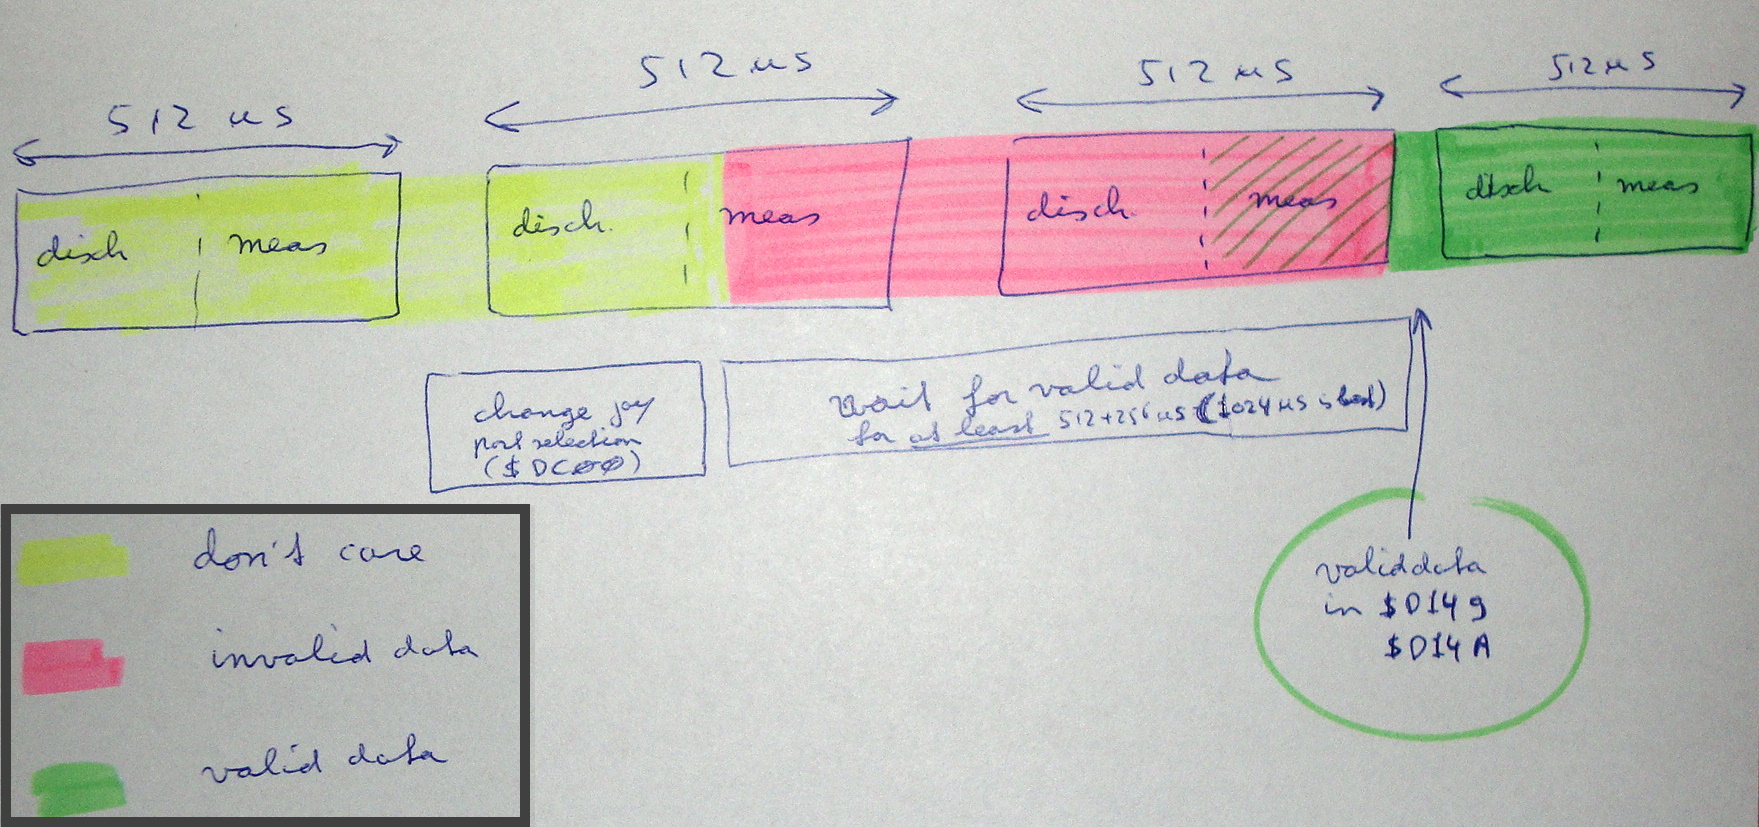 512 µs
512 µs
512 µs
512 µs
disch
meas
disch.
meas
disch.
meas
disch
meas
change joy
port selection
($DC00)
Wait for valid data
for at least 512+256 µs (1024 µs is best)
valid data
in $D149
$D14A
don't care
invalid data
valid data